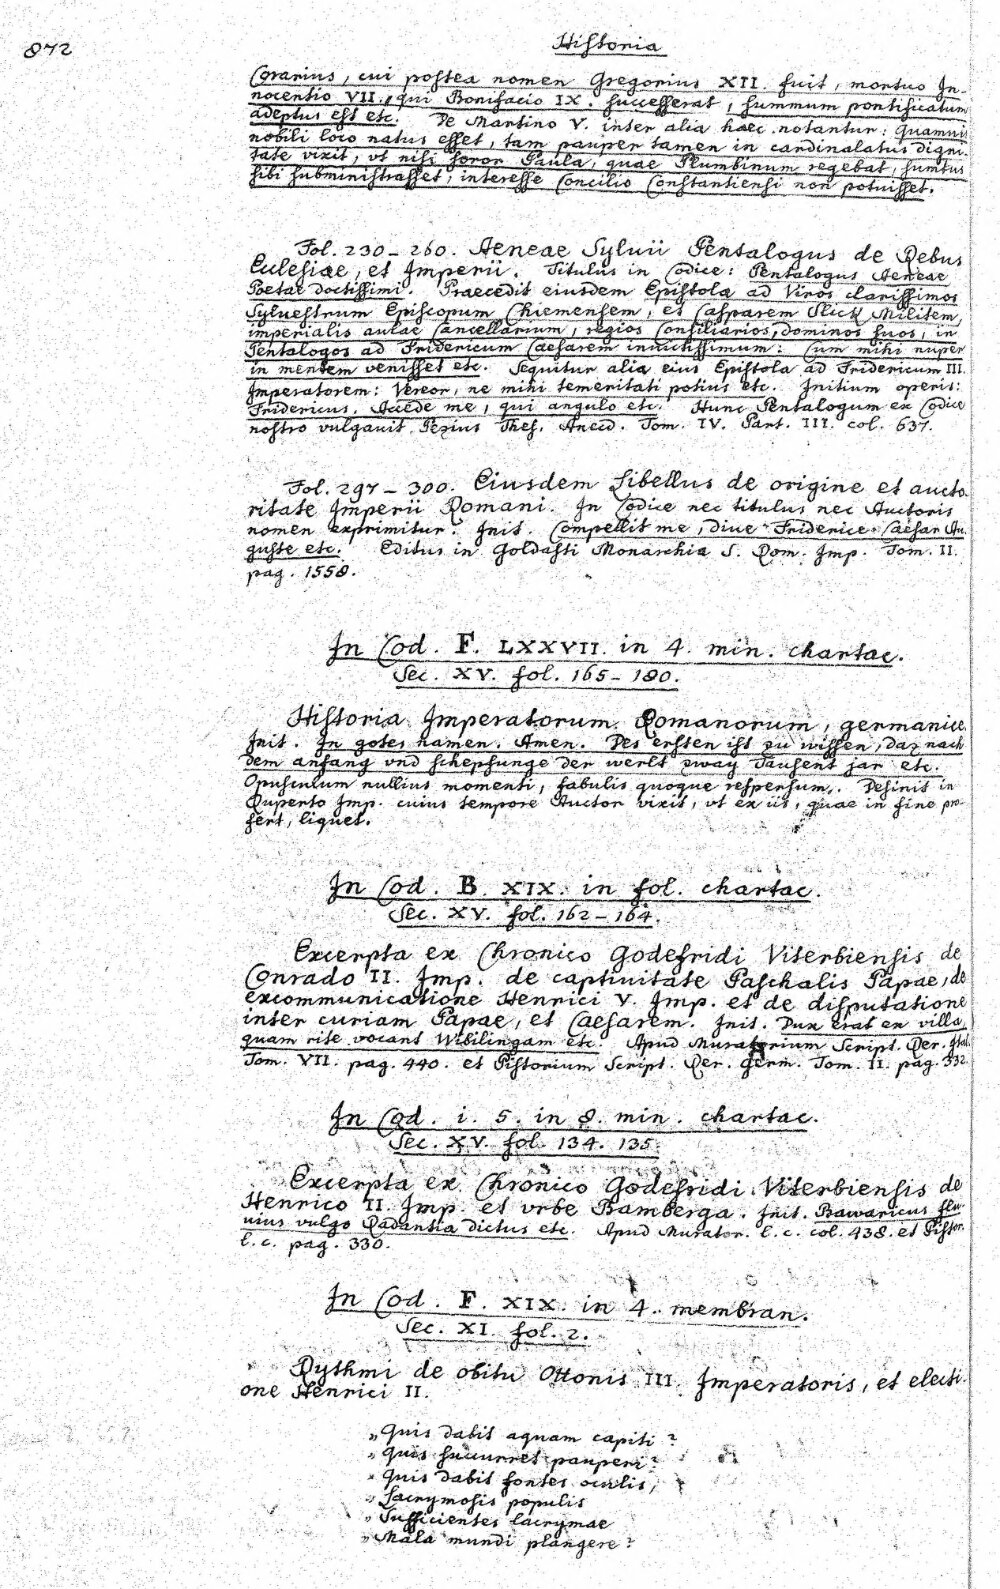 872
Historia
Corarius, cui postea nomen Gregorius XII. fuit, mortuo In-
nocentio VII. qui Bonifacio IX. successerat, summum pontificatum
adeptus est etc. De Martino V. inter alia haec notantur: Quamuis
nobili loco natus esset, tam pauper tamen in cardinalatus digni-
tate vixit, ut nisi soror Paula, quae Plumbinum regebat, sumtus
sibi subministrasset, interesse Concilio Constantiensi non potuisset.
Fol. 230-260. Aeneae Syluii Pentalogus de Rebus
Ecclesiae, et Imperii. Titulus in Codice: Pentalogus Aeneae
Poetae doctissimi. Praecedit eiusdem Epistola ad Viros clarissimos
Syluestrum Episcopum Chiemensem, et Casparem Slick Militem,
imperialis aulae Cancellarium, regios Consiliarios, dominos suos, in
Pentalogos ad Fridericum Caesarem inuictissimum: Cum mihi nuper
in mentem venisset etc. Sequitur alia eius Epistola ad Fridericum III.
Imperatorem: Vereor, ne mihi temeritati potius etc. Initium operis:
Fridericus. Accede me, qui angulo etc. Hunc Pentalogum ex Codice
nostro vulgauit Pezius Thes. Anecd. Tom. IV. Part. III. col. 637.
Fol. 297-300. Eiusdem Libellus de origine et aucto-
ritate Imperii Romani. In Codice nec titulus nec Auctoris
nomen exprimitur. Init. Compellit me, diue Friderice Caesar Au-
guste etc. Editus in Goldasti Monarchia S. Rom. Imp. Tom. II.
pag. 1558.
In Cod. F. LXXVII. in 4. min. chartac.
Sec. XV. fol. 165-180.
Historia Imperatorum Romanorum, germanice.
Init. In gotes namen. Amen. Des ersten ist zu wissen, daz nach
dem anfang vnd schepfunge der werlt zway Tausent jar etc.
Opusculum nullius momenti, fabulis quoque respersum. Desinit in
Ruperto Imp. cuius tempore Auctor vixit, vt ex iis, quae in fine pro-
fert, liquet.
In Cod. B. XIX. in fol. chartac.
Sec. XV. fol. 162-164.
Excerpta ex Chronico Godefridi Viterbiensis de
Conrado II. Imp. de captiuitate Paschalis Papae, de
excommunicatione Henrici V. Imp. et de disputatione
inter curiam Papae, et Caesarem. Init. Dux erat ex villa,
quam rite vocant Wibilingam etc. Apud Muratorium Script. Rer. Ital.
Tom. VII. pag. 440. et Pistorium Script. Rer. Germ. Tom. II. pag. 332.
In Cod. i. 5. in 8. min. chartac.
Sec. XV. fol. 134. 135.
Excerpta ex Chronico Godefridi Viterbiensis de
Henrico II. Imp. et vrbe Bamberga. Init. Bawaricus flu-
uius vulgo Radantia dictus etc. Apud Murator. l. c. col. 438. et Pistor.
l. c. pag. 330.
In Cod. F. XIX. in 4. membran.
Sec. XI. fol. 2.
Rythmi de obitu Ottonis III. Imperatoris, et electi-
one Henrici II.
„Quis dabit aquam capiti?
„Quis succurret pauperi?
„Quis dabit fontes oculis,
„Lacrymosis populis
„Sufficientes lacrymae
„Mala mundi plangere?